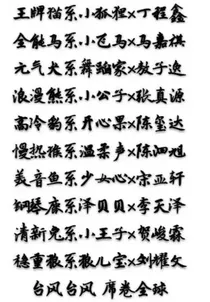 王牌猫系.小狐狸×丁程鑫
全能马系.小飞马×马嘉祺
元气犬系.舞蹈家×敖子逸
浪漫熊系.小公子×张真源
高冷豹系.开心果×陈玺达
慢热猴系.温柔声×陈泗旭
美音鱼系.少女心×宋亚轩
钢琴鹿系.泽贝贝×李天泽
清新兔系.小王子×贺峻霖
稳重狼系.狼儿宝×刘耀文
台风台风 席卷全球